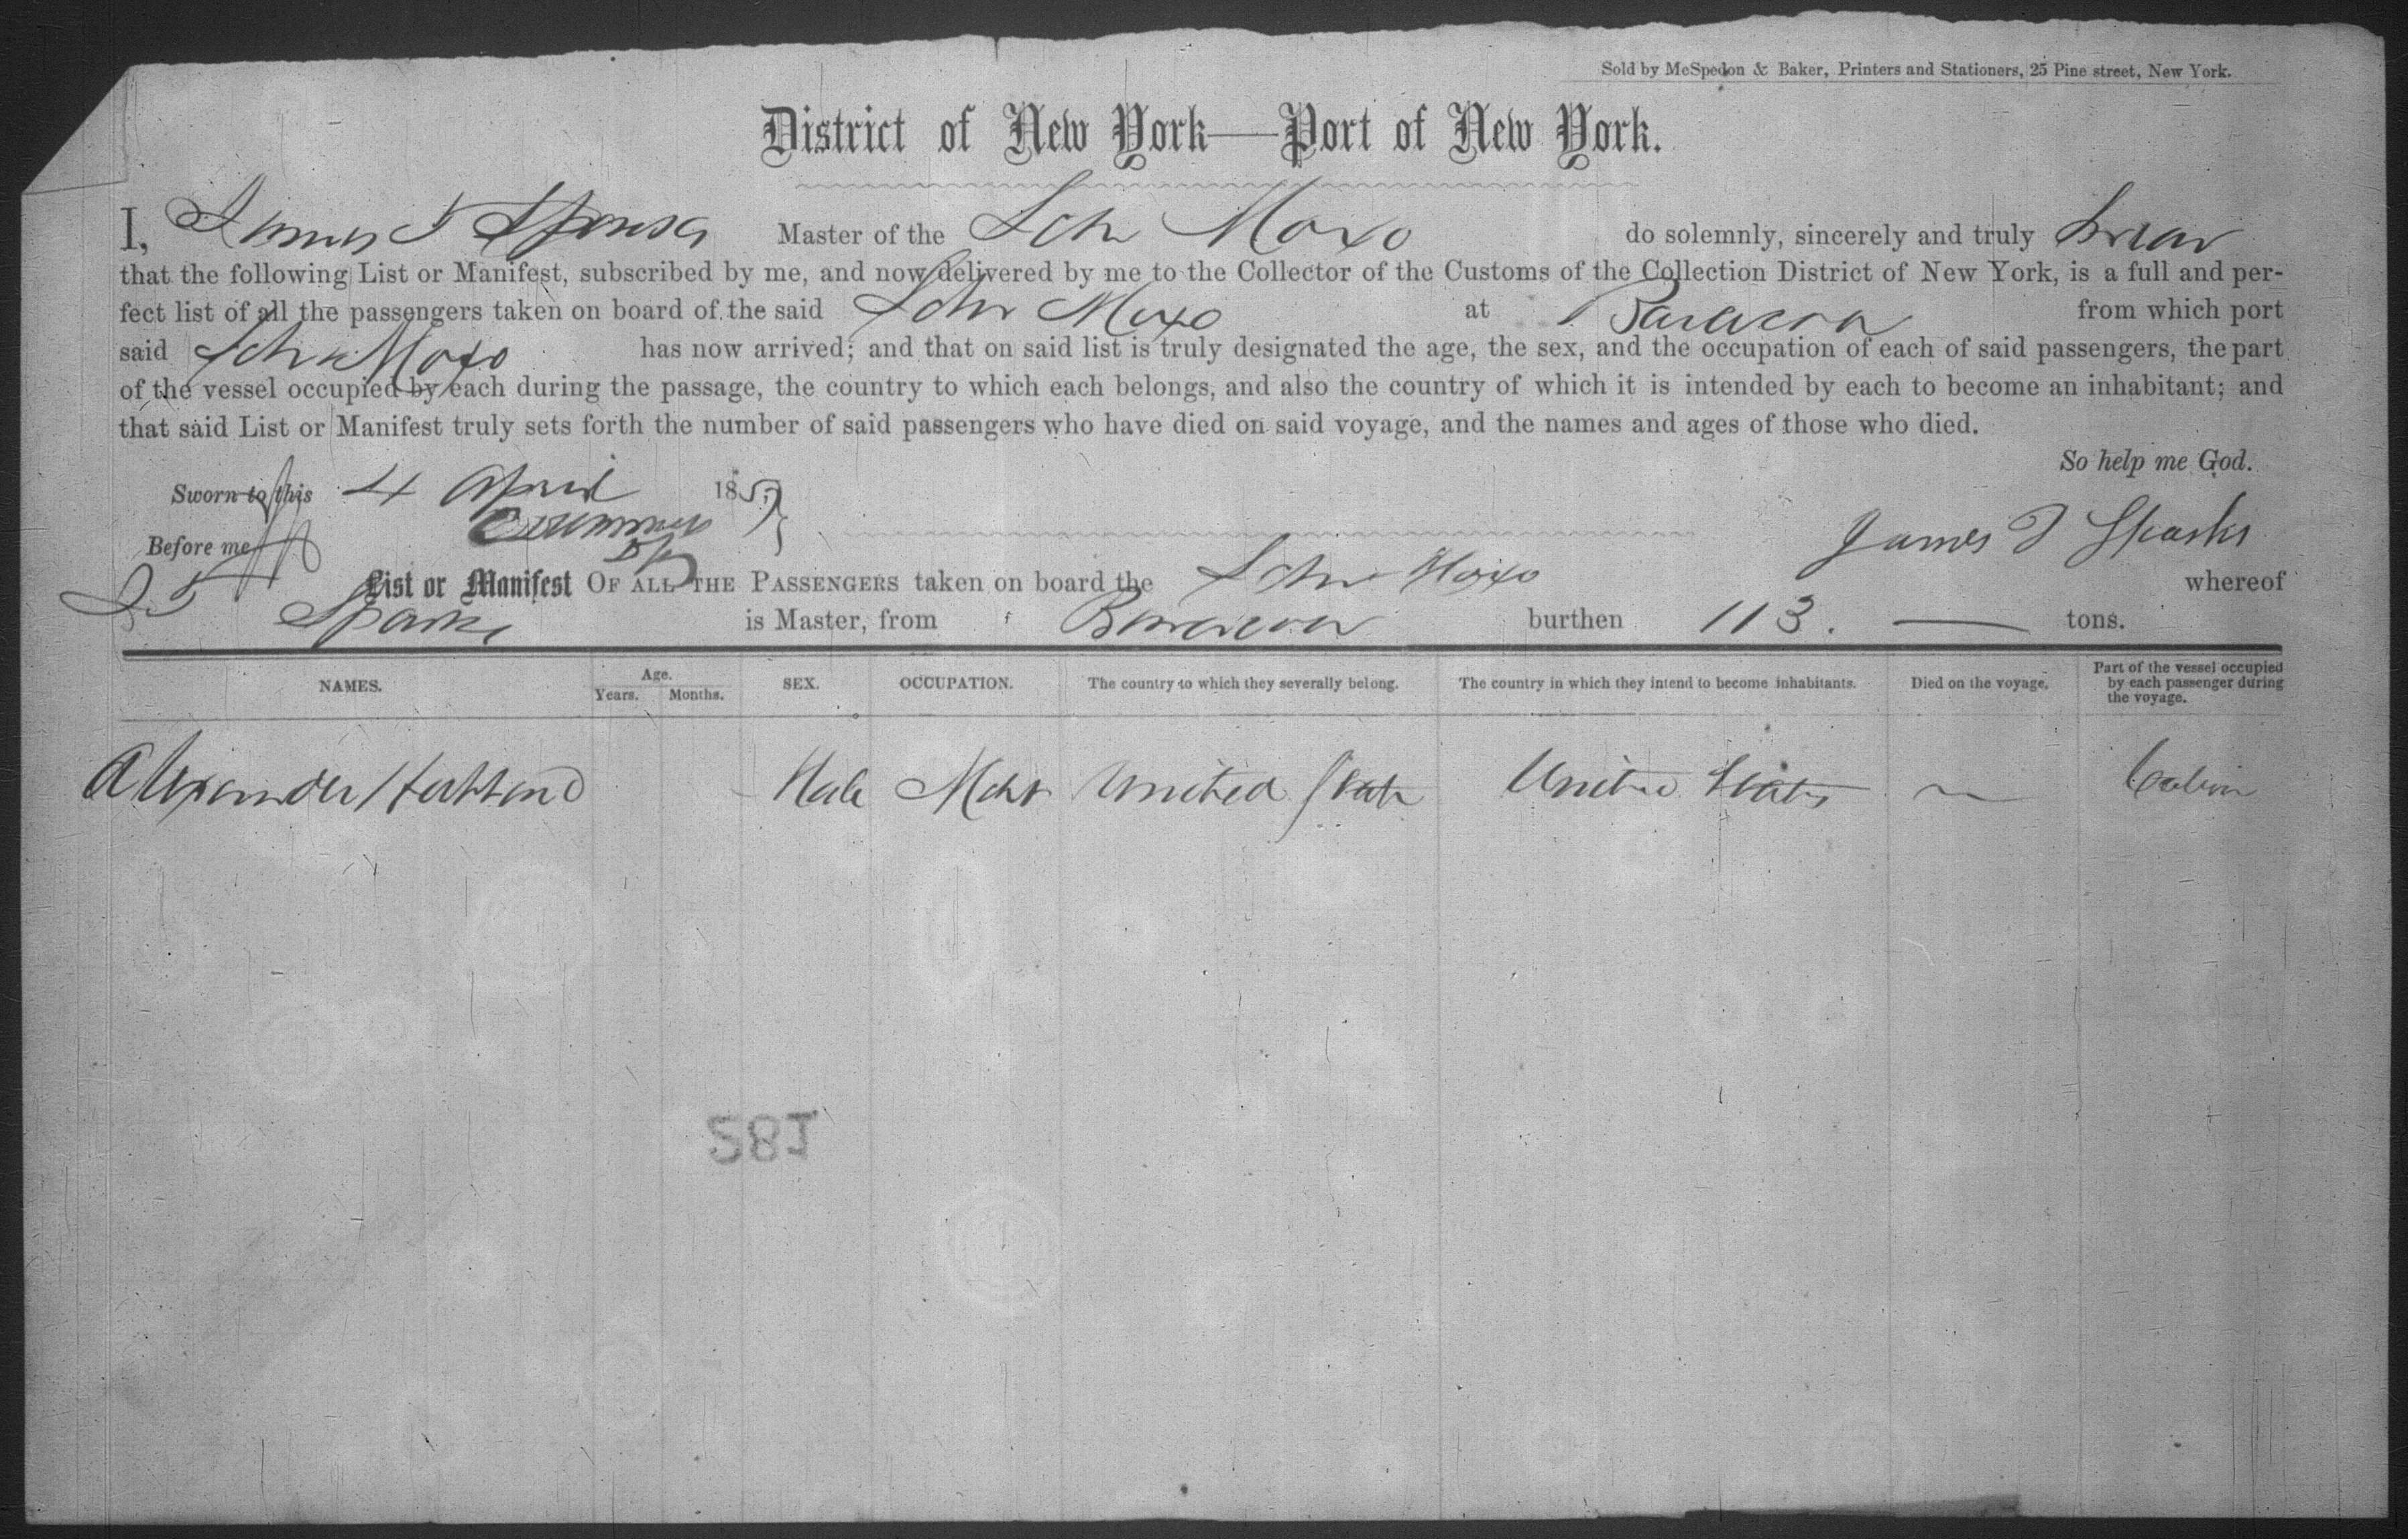 Sold by McSpedon & Baker, Printers and Stationers, 25 Pine street, New York.
District of New York—Port of New York.
I, James T Sparks Master of the Schr Moxo do solemnly, sincerely and truly swear
that the following List or Manifest, subscribed by me, and now delivered by me to the Collector of the Customs of the Collection District of New York, is a full and per-
fect list of all the passengers taken on board of the said Schr Moxo at from which port
said Schr Moxo has now arrived; and that on said list is truly designated the age, the sex, and the occupation of each of said passengers, the part
of the vessel occupied by each during the passage, the country to which each belongs, and also the country of which it is intended by each to become an inhabitant; and
that said List or Manifest truly sets forth the number of said passengers who have died on said voyage, and the names and ages of those who died.
So help me God.
Sworn to this 4 April 1857
Before me
James T Sparks
List or Manifest OF ALL THE PASSENGERS taken on board the Schr Moxo whereof
J T Sparks is Master, from burthen 113. — tons.
NAMES. Age. Years. Months. SEX. OCCUPATION. The country to which they severally belong. The country in which they intend to become inhabitants. Died on the voyage. Part of the vessel occupied by each passenger during the voyage.
Alexander Male Mcht United State United States Cabin
281